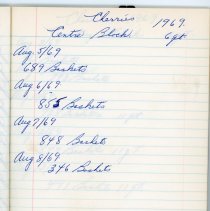 Cherries 1969.
Centre Block. 6 qt.
Aug. 5/69
689 Baskets
Aug 6/69
855 Baskets
Aug 7/69
848 Baskets
Aug 8/69
346 Baskets